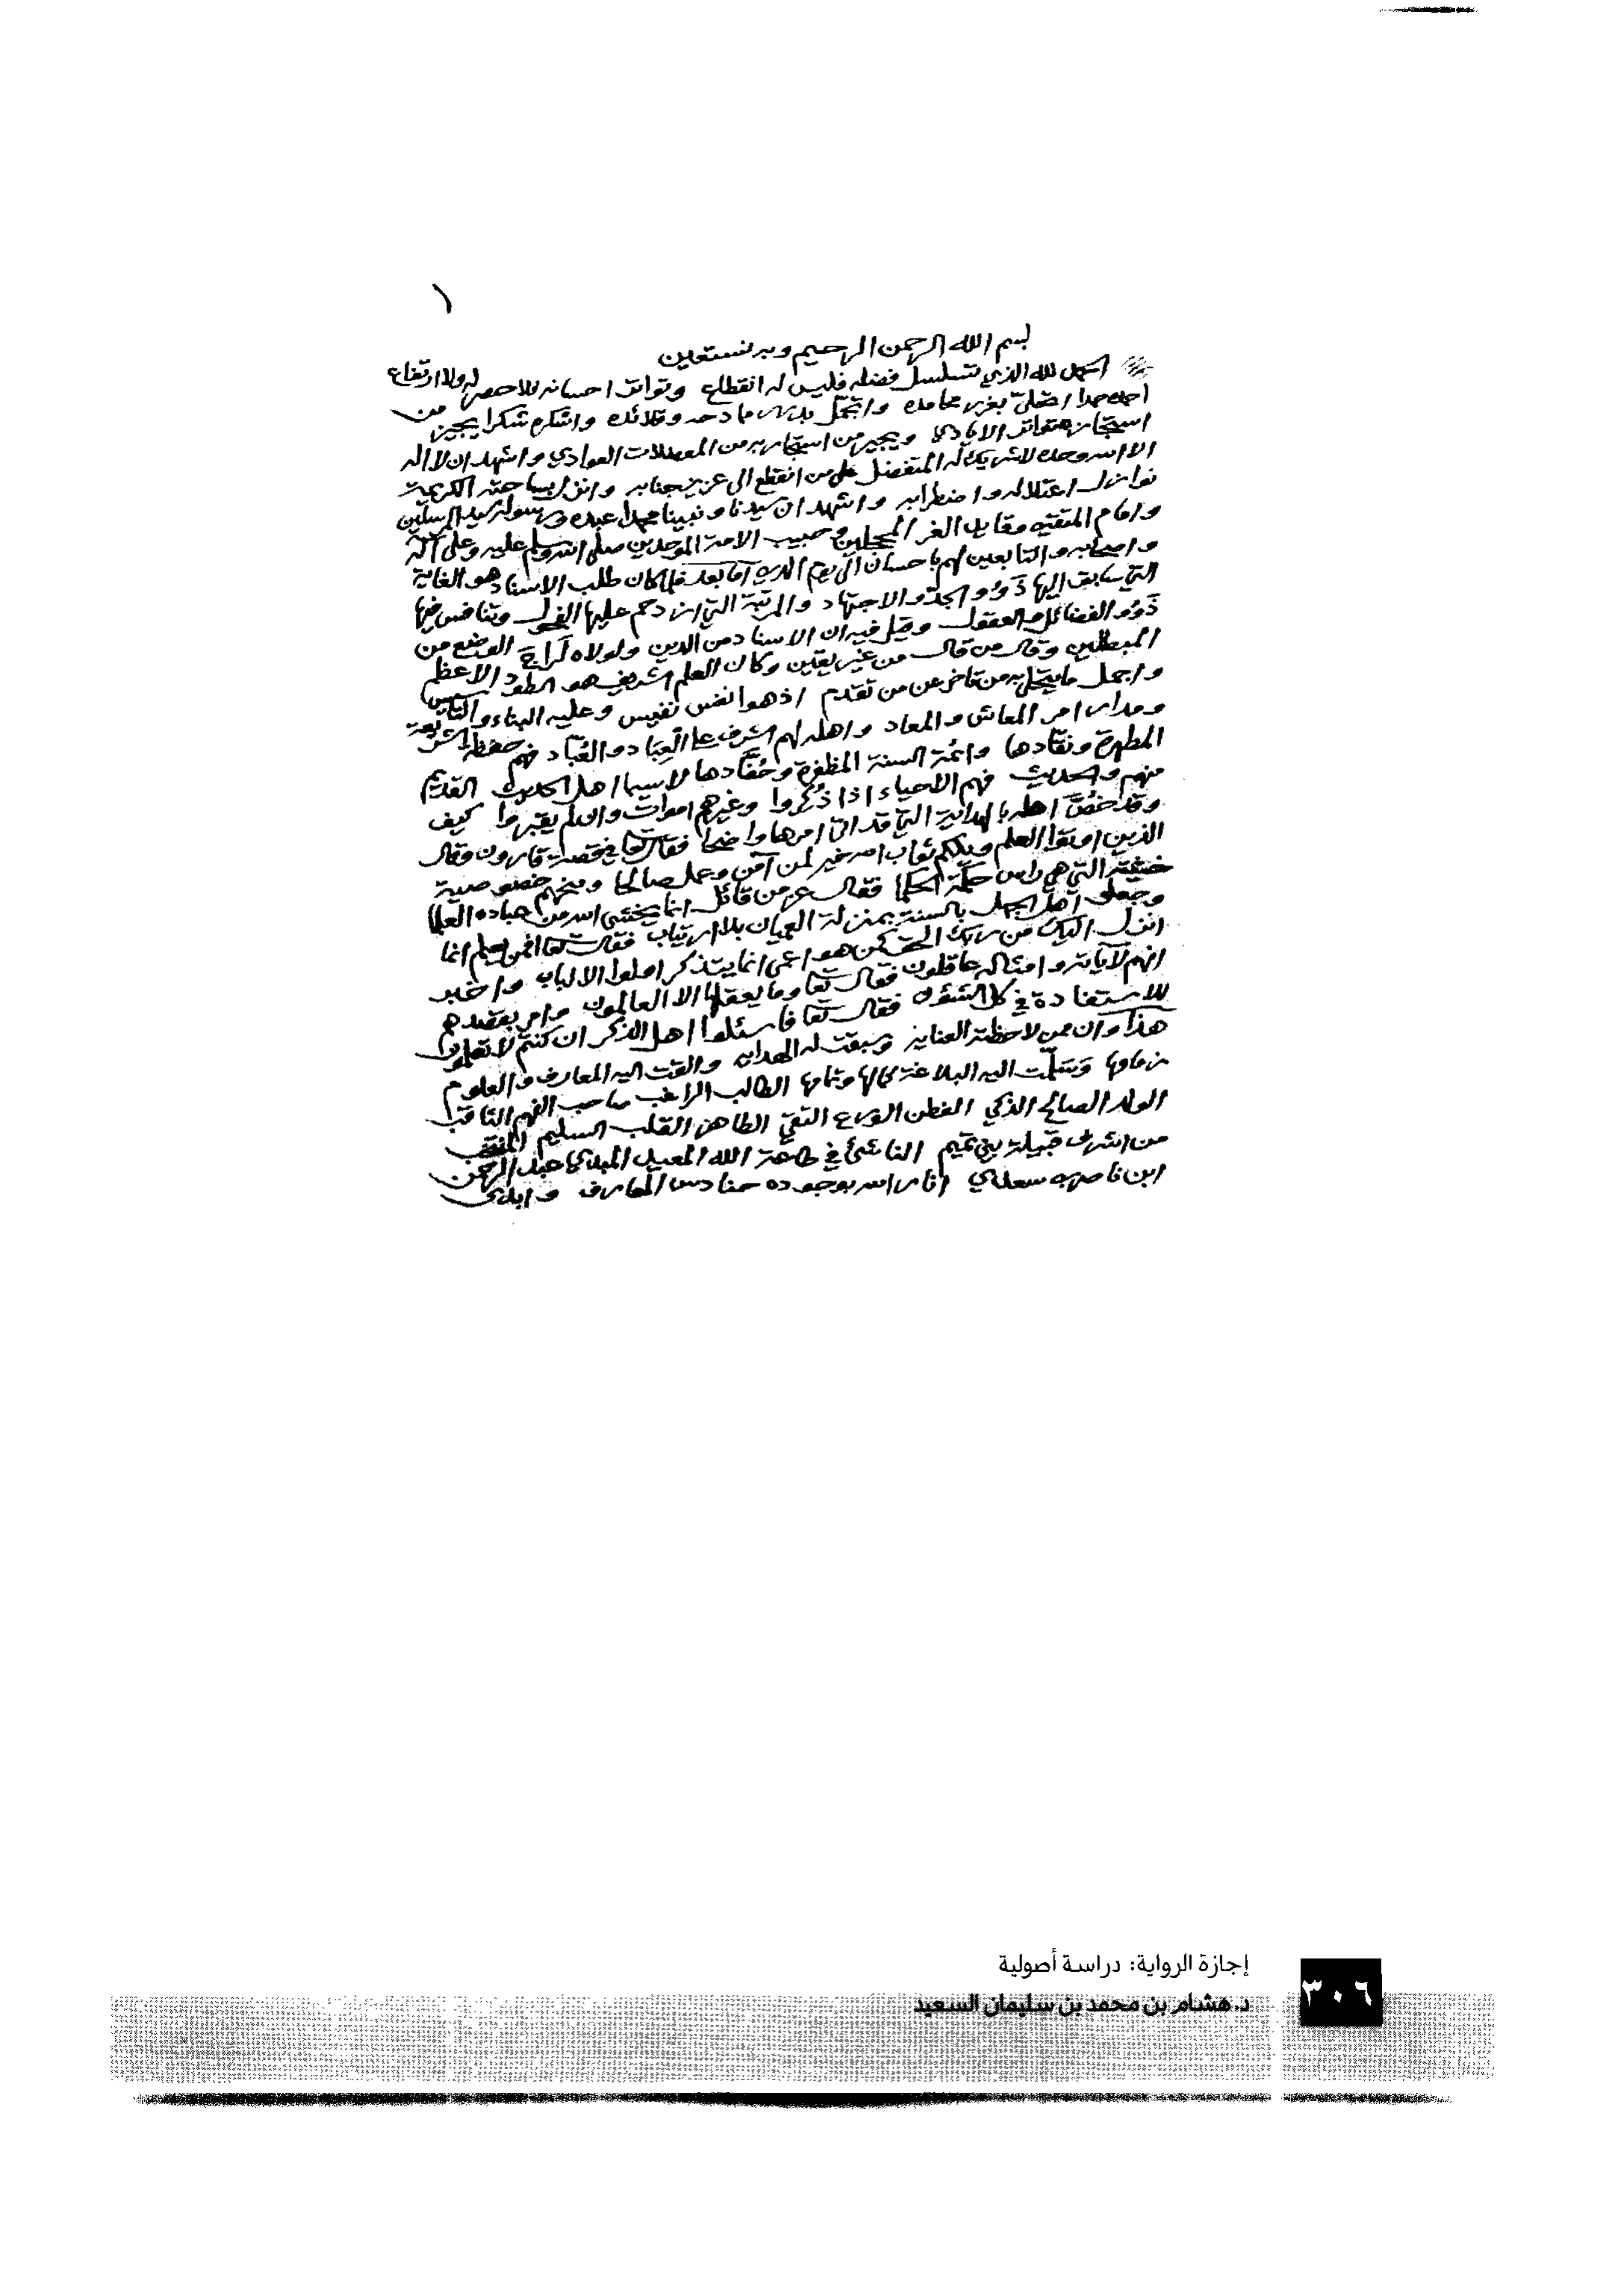 ١
بسم الله الرحمن الرحيم وبه نستعين
الحمد لله الذي تسلسل فضله فليس له انقطاع وتواتر احسانه فلا حصر له ولا ارتفاع
احمده حمدا اتحلى بغرر محامده واتجمل بدرر مادحه وقلائده واشكره شكرا يجيز من
استجاز متواتر الايادي ويجير من استجار به من المعضلات العوادي واشهد ان لا اله
الا الله وحده لا شريك له المتفضل على من انقطع الى عزيز جنابه وانزل بساحته الكريمة
نوازل اعتلاله واضطرابه واشهد ان سيدنا ونبينا محمدا عبده ورسوله سيد المرسلين
وامام المتقين وقايد الغر المحجلين وحبيب الامة الموحدين صلى الله وسلم عليه وعلى آله
واصحابه والتابعين لهم باحسان الى يوم الدين اما بعد فلما كان طلب الاسناد هو الغاية
التي يسابق اليها ذَوُو الجد والاجتهاد والمرتبة التي ازدحم عليها الفحول وتنافس فيها
ذَوُو الفضائل والعقول وقيل فيه ان الاسناد من الدين ولولاه لَراجَ الوضع من
المبطلين وقال من قال من غير يقين وكان العلم الشريف هو الطود الاعظم
واجمل ما يتحلى به من تاخر عن من تقدم اذ هو انفس نفيس وعليه البناء والتاسيس
ومدار امر المعاش والمعاد واهله لهم الشرف على العِبَاد والعُبَّاد فهم حفظة الشريعة
المطهرة ونقادها وائمة السنة المظفرة وحُفَّادها لا سيما اهل الحديث القديم
منهم والحديث فهم الاحياء اذا ذُكروا وغيرهم اموات وان لم يقبروا كيف
وقد خُصَّ اهله بالهداية التي قد اتى امرها واضحا فقال تعالى في قصة قارون وقال
الذين اوتوا العلم ويلكم ثواب الله خير لمن آمن وعمل صالحا ومنحهم خصوصية
خشيته التي هي راس حكمة الحكما فقال عز من قائل انما يخشى الله من عباده العلما
وجعل اهل الجهل بالسنة بمنزلة العميان بلا ارتياب فقال تعالى افمن يعلم انما
انزل اليك من ربك الحق كمن هو اعمى انما يتذكر اولوا الالباب واخبر
انهم لآياته وامثاله عاقلون فقال تعالى وما يعقلها الا العالمون وامر بقصدهم
للاستفادة في كل الشؤن فقال تعالى فاسئلوا اهل الذكر ان كنتم لا تعلمون
هذا وان ممن لاحظته العناية وسبقت له الهداية والقت اليه المعارف والعلوم
زمامها وسَلَّمت اليه البلاغة كمالها وتمامها الطالب الراغب صاحب الفهم الثاقب
الولد الصالح الذكي الفطن الورع التقي الطاهر القلب السليم المنتخب
من اشرف قبيلة بني تميم الناشئ في طاعة الله المعيد المبدي عبد الرحمن
ابن ناصر بن سعدي انار الله بوجوده حنادس المعارف وابدى
إجازة الرواية: دراسة أصولية
د. هشام بن محمد بن سليمان السعيد
٣٠٦